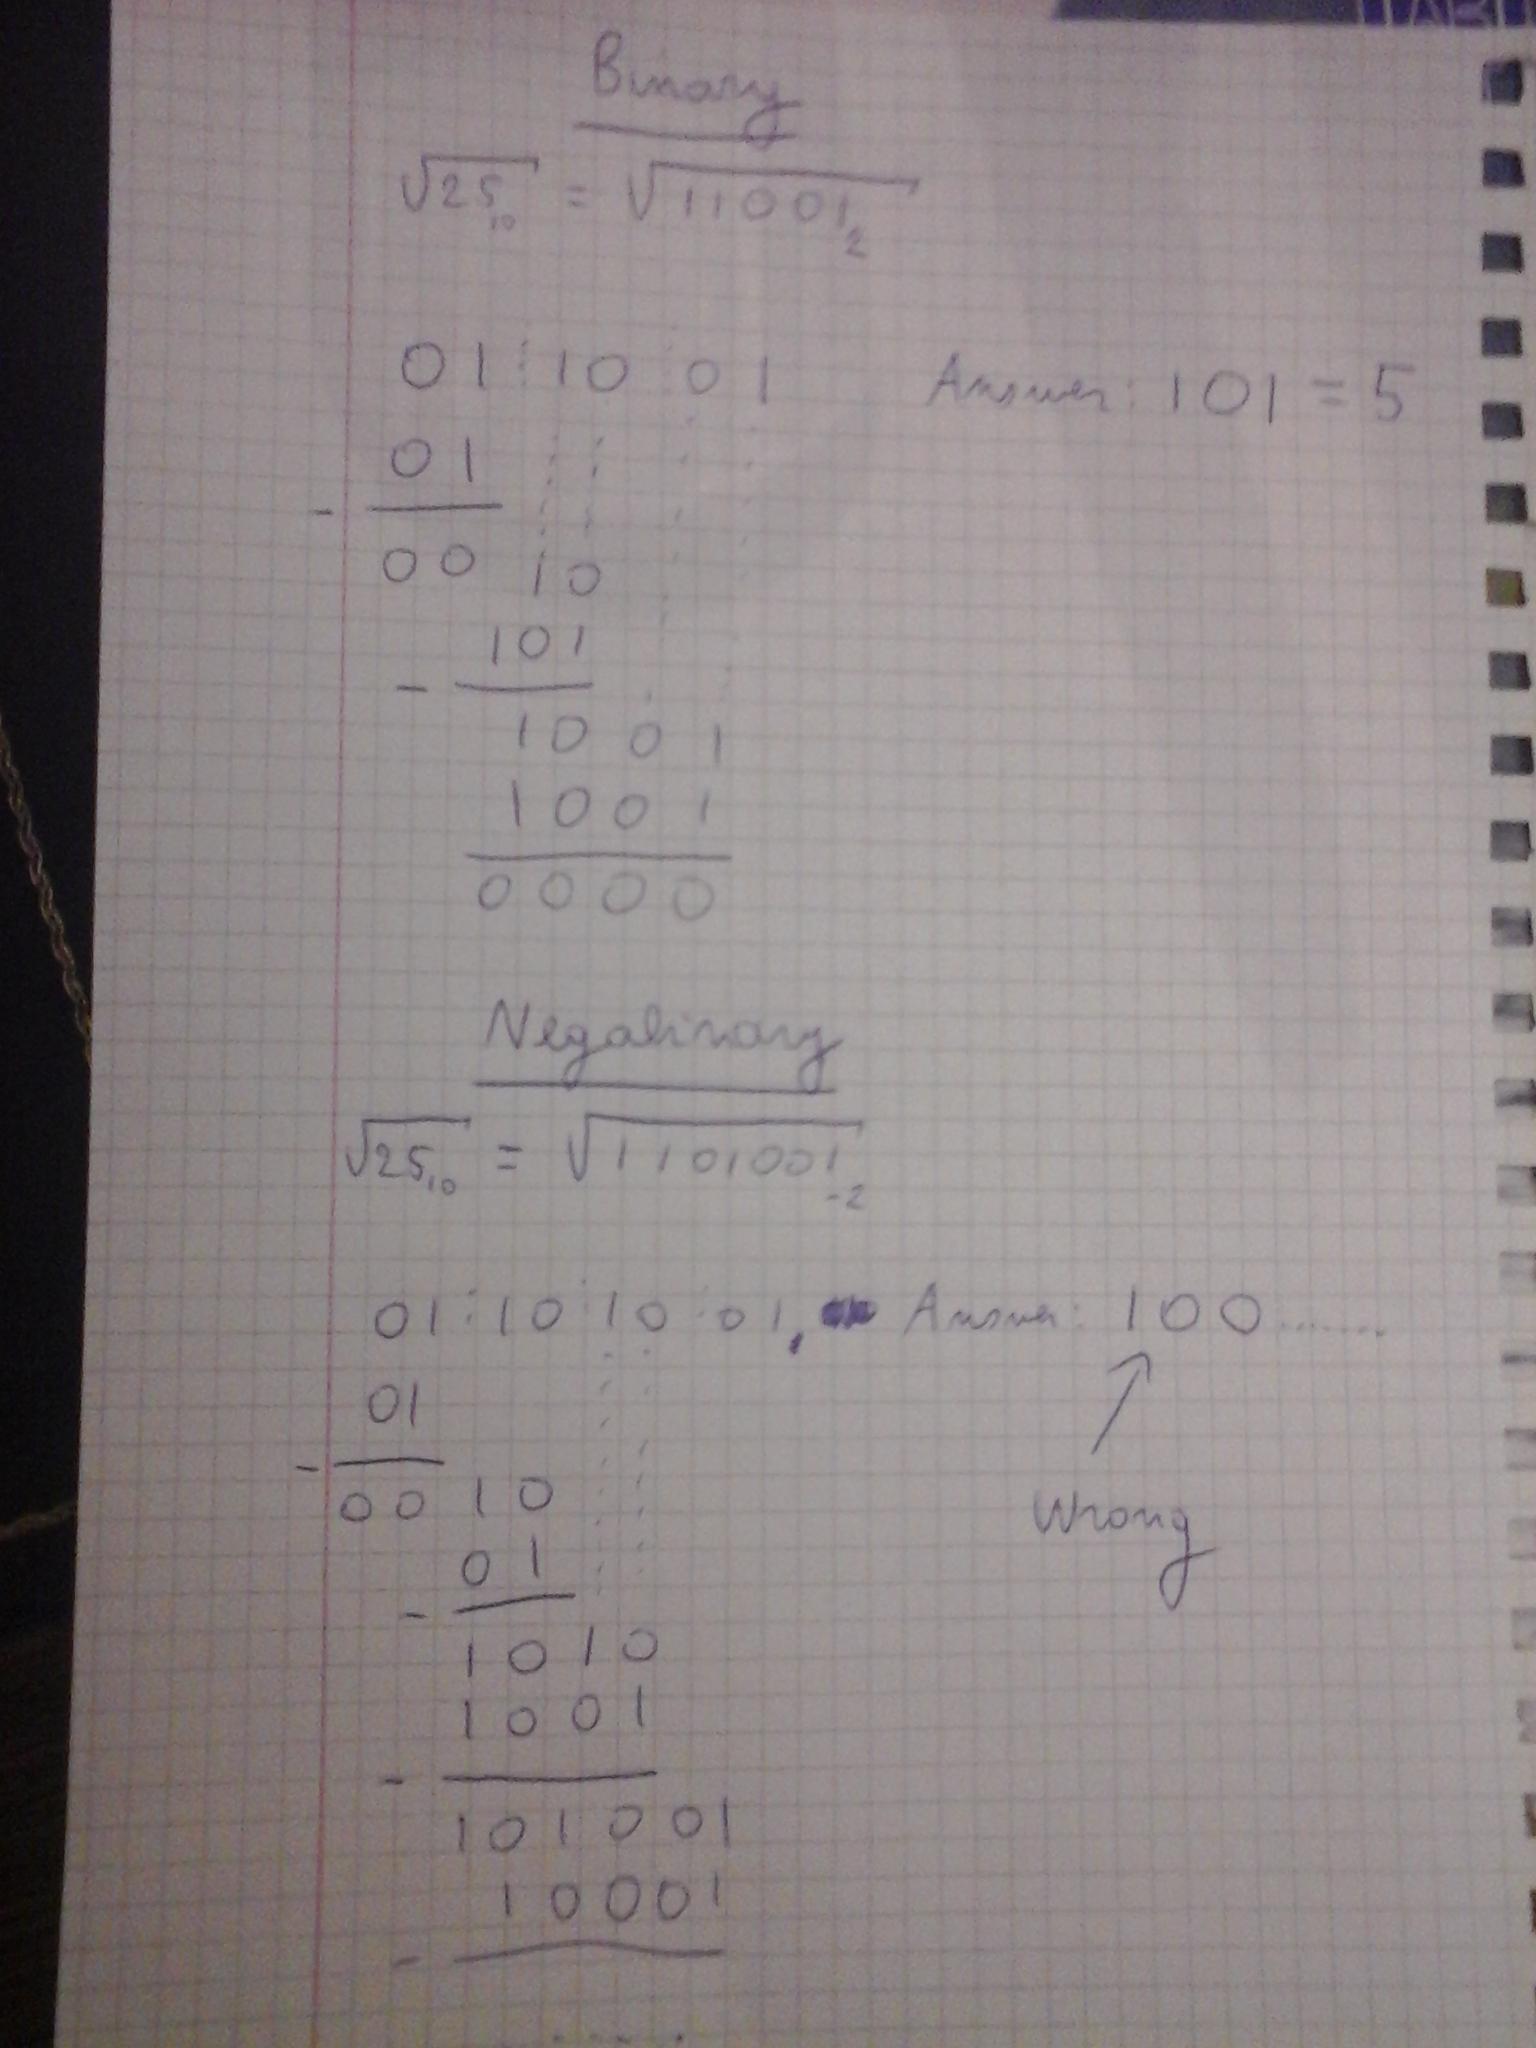 Binary
√25₁₀ = √11001₂
01:10:01 Answer: 101 = 5
01
-
00 10
101
-
1001
1001
0000
Negabinary
√25₁₀ = √1101001₋₂
01:10:10:01, Answer: 100.......
01
-
00 10
Wrong
01
-
1010
1001
-
101001
10001
-